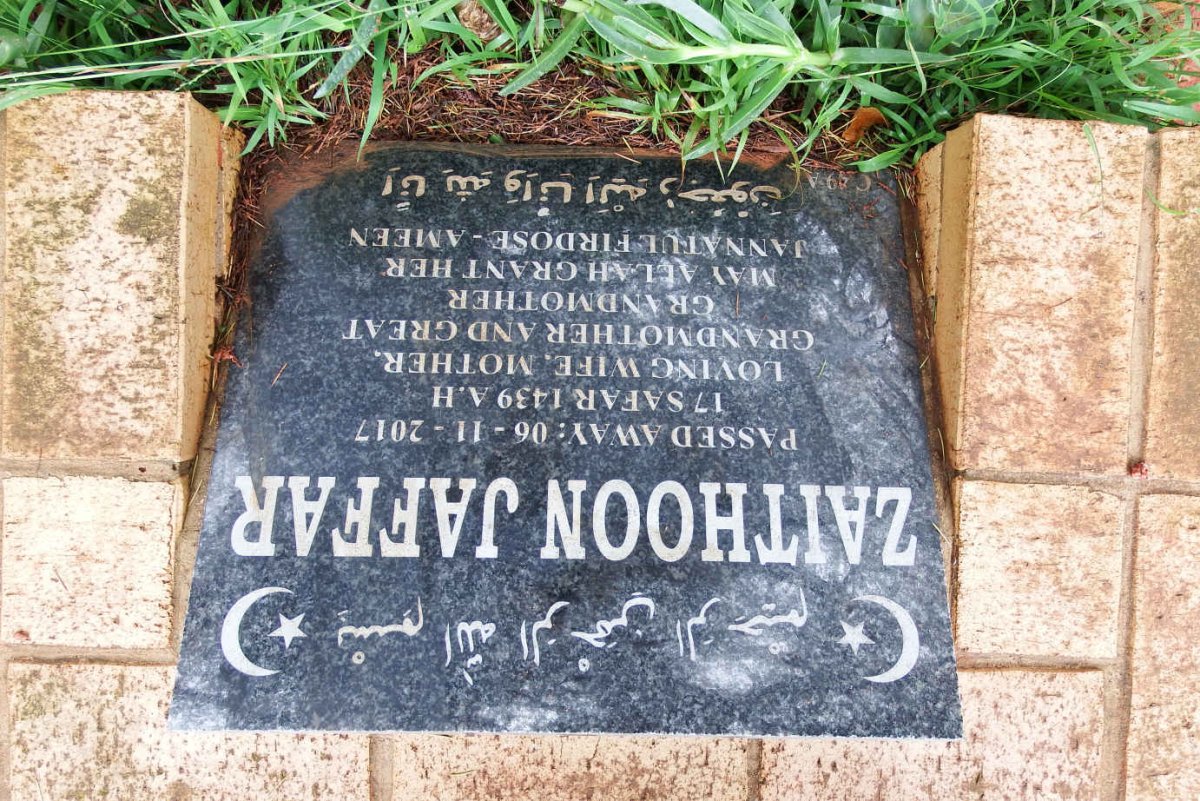 بِسْمِ اللهِ الرَّحْمٰنِ الرَّحِيْمِ
ZAITHOON JAFFAR
PASSED AWAY: 06 - 11 - 2017
17 SAFAR 1439 A.H
LOVING WIFE, MOTHER,
GRANDMOTHER AND GREAT
GRANDMOTHER
MAY ALLAH GRANT HER
JANNATUL FIRDOSE - AMEEN
اِنَّا لِلّٰهِ وَاِنَّا اِلَيْهِ رَاجِعُوْنَ